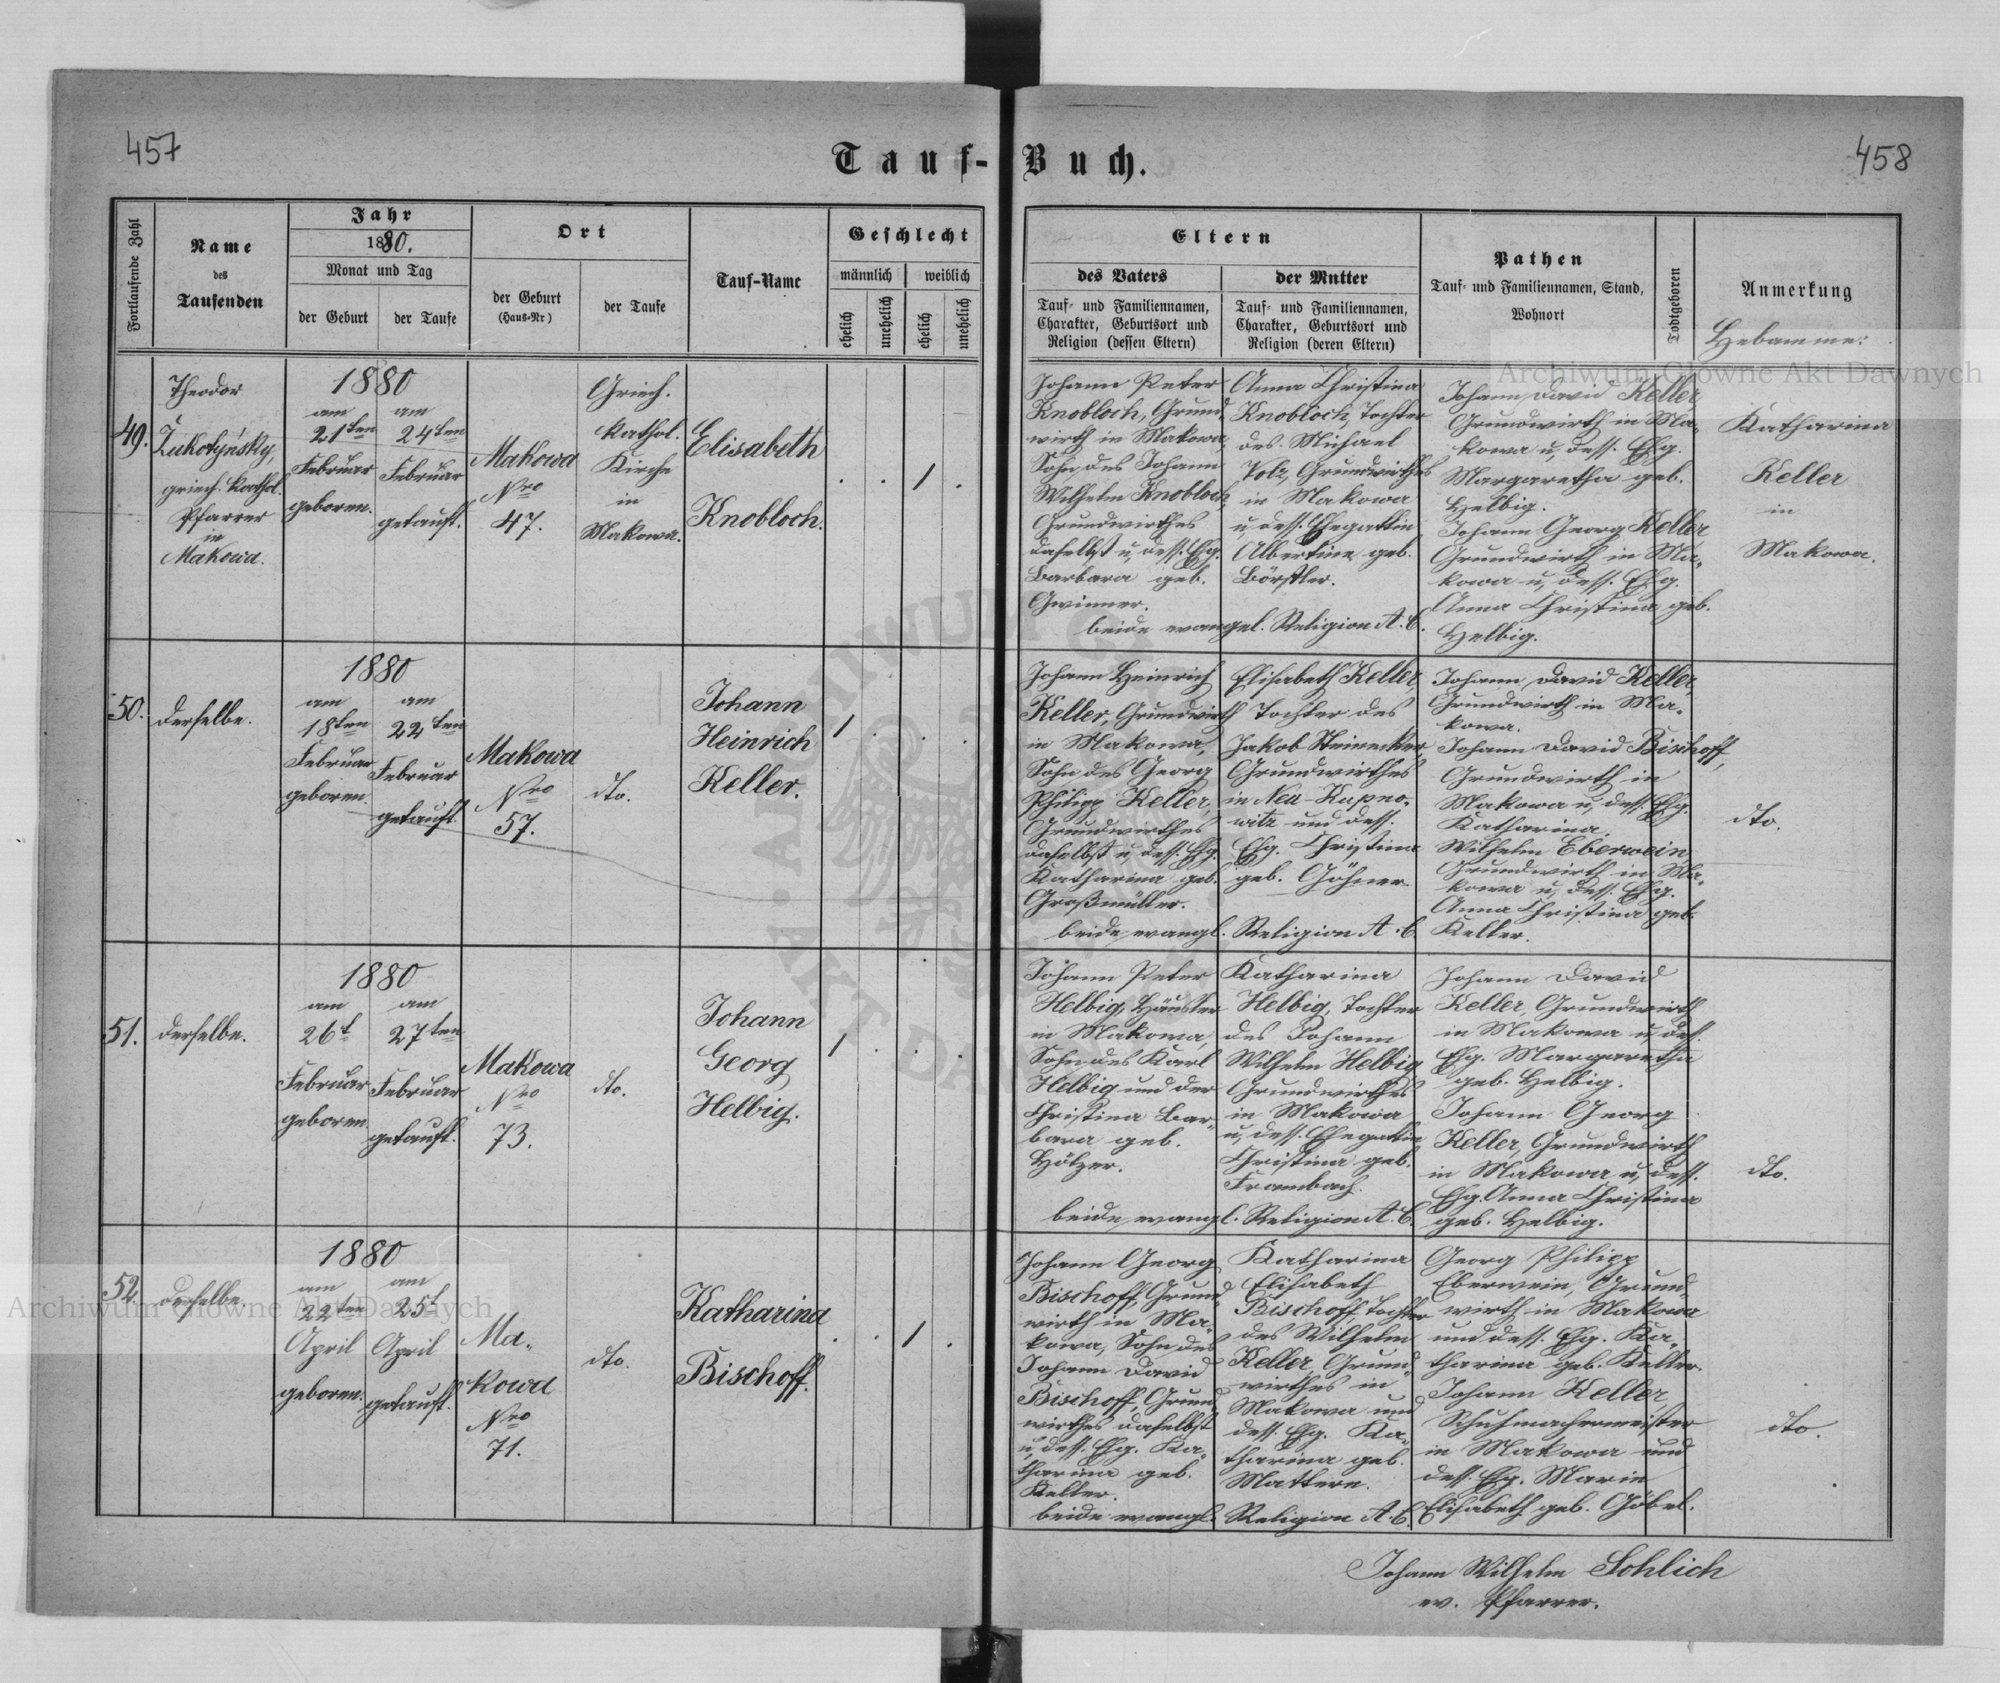 457
458
Tauf-Buch.
Fortlaufende Zahl
Name
des
Taufenden
Jahr
1880.
Monat und Tag
der Geburt
der Taufe
Ort
der Geburt
(Haus-Nr)
der Taufe
Tauf-Name
Geschlecht
männlich
weiblich
ehelich
unehelich
ehelich
unehelich
Eltern
des Vaters
Tauf- und Familiennamen,
Charakter, Geburtsort und
Religion (dessen Eltern)
der Mutter
Tauf- und Familiennamen,
Charakter, Geburtsort und
Religion (deren Eltern)
Pathen
Tauf- und Familiennamen, Stand,
Wohnort
Todtgeboren
Anmerkung
Hebamme:
49.
Theodor
Žukotyńsky,
griech. kathol.
Pfarrer
in
Makowa.
1880
am
21ten
Februar
geboren.
am
24ten
Februar
getauft.
Makowa
Nro
47.
Griech.
kathol.
Kirche
in
Makowa.
Elisabeth
Knobloch.
. . 1 .
Johann Peter
Knobloch, Grund-
wirth in Makowa,
Sohn des Johann
Wilhelm Knobloch,
Grundwirthes
daselbst u. dess. Ehg.
Barbara geb.
Gwinner.
Anna Christina
Knobloch, Tochter
des Michael
Grundwirthes
in Makowa
u. dess. Ehegattin
Albertine geb.
Börstler.
beide evangel. Religion A. C.
Johann David Keller
Grundwirth in Ma-
kowa u. dess. Ehg.
Margaretha geb.
Helbig.
Johann Georg Keller
Grundwirth in Ma-
kowa u. dess. Ehg.
Anna Christina geb.
Helbig.
Katharina
Keller
in
Makowa.
50.
derselbe.
1880
am
18ten
Februar
geboren.
am
22ten
Februar
getauft.
Makowa
Nro
57.
dto.
Johann
Heinrich
Keller.
1 . . .
Johann Heinrich
Keller, Grundwirth
in Makowa,
Sohn des Georg
Philipp Keller,
Grundwirthes
daselbst u. dess. Ehg.
Katharina geb.
Großmüller.
Elisabeth Keller,
Tochter des
Jakob Steinecker,
Grundwirthes
in Neu-Kupno-
witz und dess.
Ehg. Christina
geb. Göhner
beide evangl. Religion A. C.
Johann David Keller,
Grundwirth in Ma-
kowa.
Johann David Bischoff,
Grundwirth in
Makowa u. dess. Ehg.
Katharina.
Wilhelm Eberwein,
Grundwirth in Ma-
kowa u. dess. Ehg.
Anna Christina geb.
Keller.
dto.
51.
derselbe.
1880
am
26t
Februar
geboren.
am
27ten
Februar
getauft.
Makowa
Nro
73.
dto.
Johann
Georg
Helbig.
1 . . .
Johann Peter
Helbig, Häusler
in Makowa,
Sohn des Karl
Helbig und der
Christina Bar-
bara geb.
Hölzer.
Katharina
Helbig, Tochter
des Johann
Wilhelm Helbig
Grundwirthes
in Makowa
u. dess. Ehegattin
Christina geb.
Frambach.
beide evangl. Religion A. C.
Johann David
Keller, Grundwirth
in Makowa u. dess.
Ehg. Margaretha
geb. Helbig.
Johann Georg
Keller, Grundwirth
in Makowa u. dess.
Ehg. Anna Christina
geb. Helbig.
dto.
52.
derselbe.
1880
am
22ten
April
geboren.
am
25t
April
getauft.
Ma-
kowa
Nro
71.
dto.
Katharina
Bischoff.
. . 1 .
Johann Georg
Bischoff, Grund-
wirth in Ma-
kowa, Sohn des
Johann David
Bischoff, Grund-
wirthes daselbst
u. dess. Ehg. Ka-
tharina geb.
Keller.
Katharina
Elisabeth
Bischoff, Tochter
des Wilhelm
Keller, Grund-
wirthes in
Makowa und
dess. Ehg. Ka-
tharina geb.
Mattern.
beide evangl. Religion A. C.
Georg Philipp
Eberwein, Grund-
wirth in Makowa
und dess. Ehg. Ka-
tharina geb. Keller.
Johann Keller,
Schuhmachermeister
in Makowa und
dess. Ehg. Marie
Elisabeth geb. Göbel.
dto.
Johann Wilhelm Sohlich
ev. Pfarrer.
Archiwum Główne Akt Dawnych
Archiwum Główne Akt Dawnych